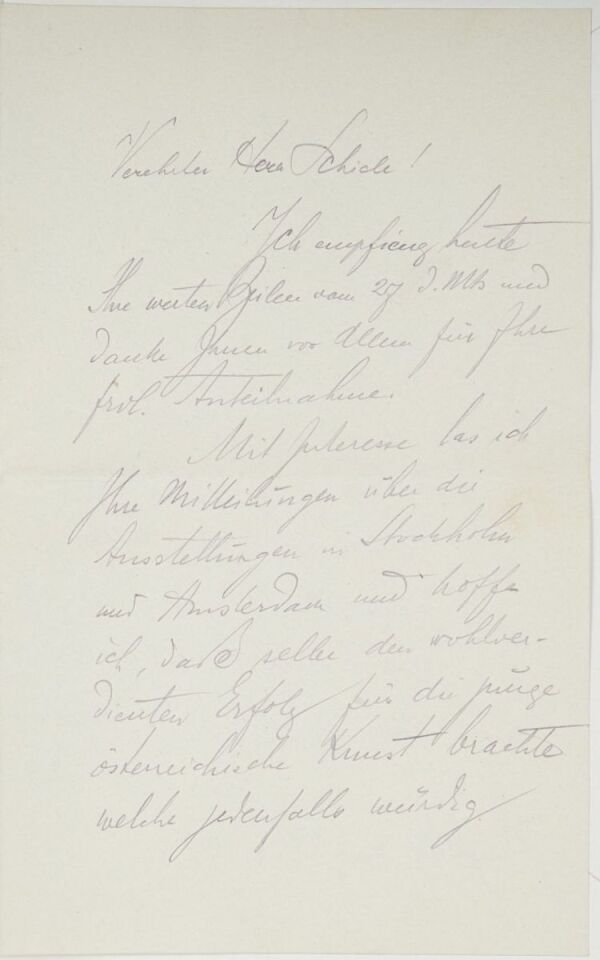 Verehrter Herr Schiele!
Ich empfieng heute
Ihre werten Zeilen vom 27 d. Mts und
danke Ihnen vor Allem für Ihre
frdl. Anteilnahme.
Mit Interesse las ich
Ihre Mitteilungen über die
Ausstellungen in Stockholm
und Amsterdam und hoffe
ich, daß selbe den wohlver-
dienten Erfolg für die junge
österreichische Kunst brachte
welche jedenfalls würdig